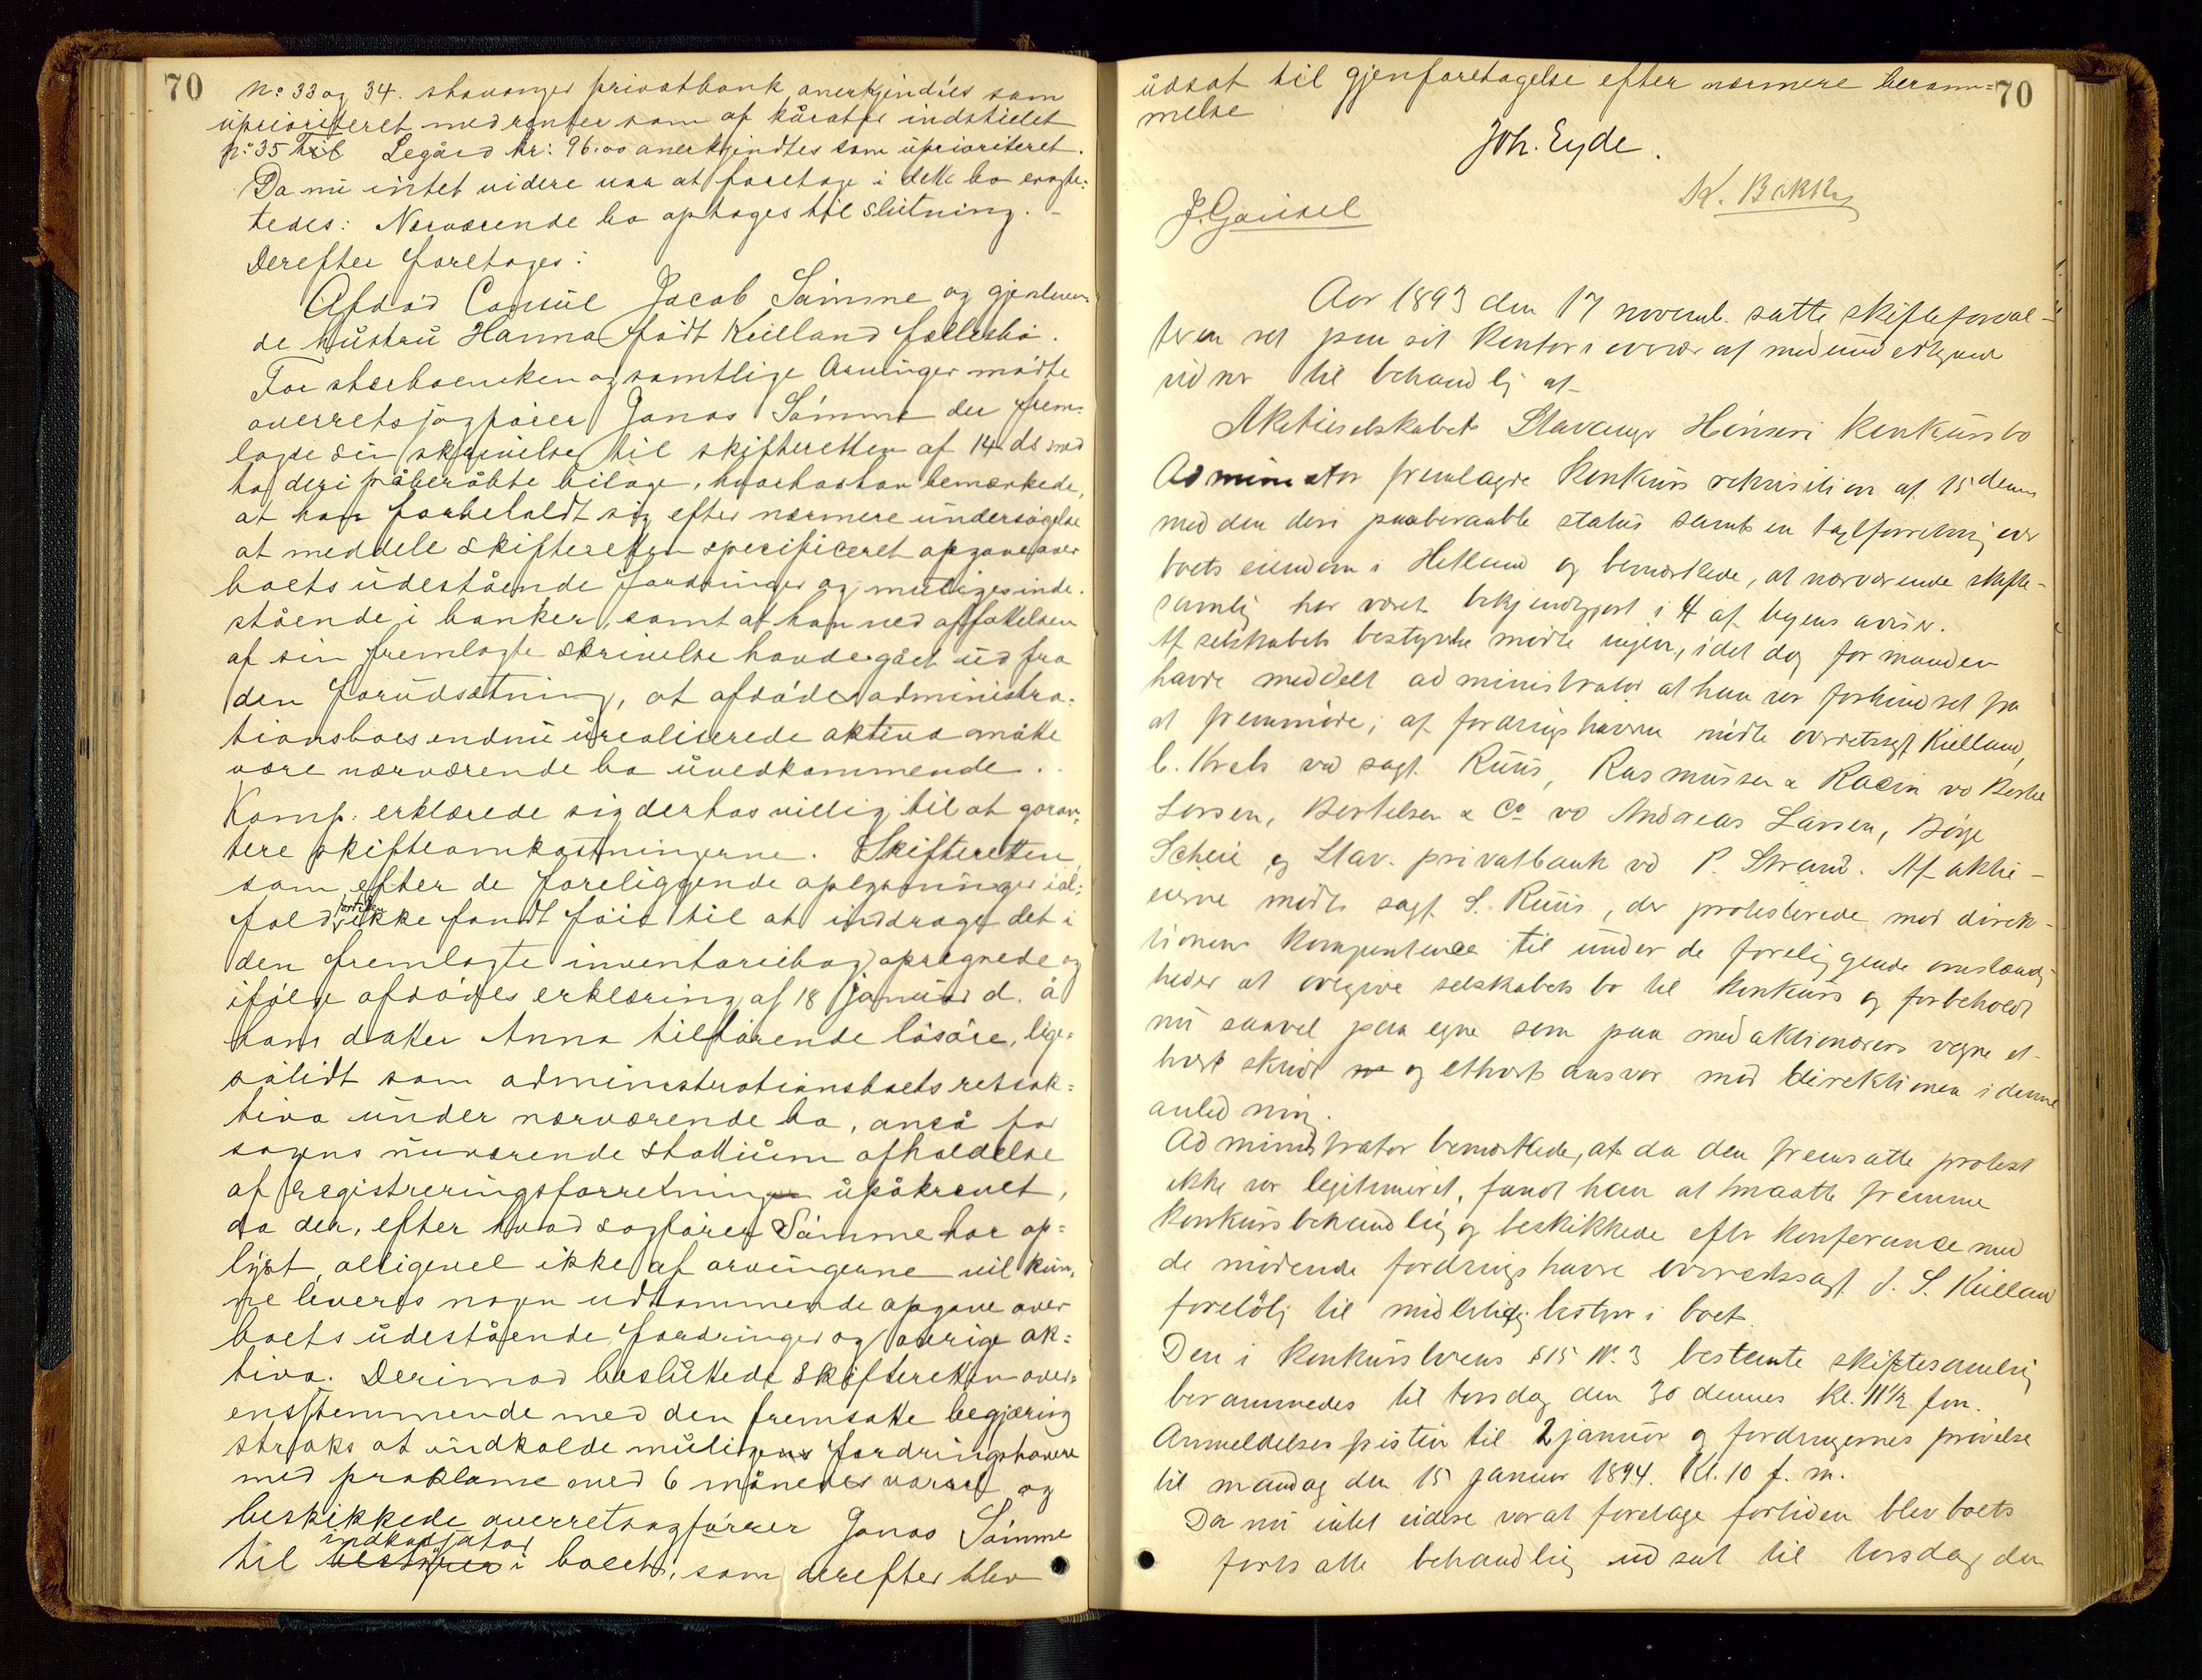 70
No 33 og 34. stavanger privatbank anerkjendtes som
úprioriteret med renter som af kúrator indstillet
No 35 Legård kr: 96.00 anerkjendtes som úprioriteret.
Da nú intet videre var at foretage i dette bo eragte-
tedes: Nærværende bo optages til slútning. -
Derefter foretoges:
Afdød Consúl Jacob Sømme og gjenleven-
de hústrú Hanna født Kielland fællesbo.
For stærboenken og samtlige Arvinger mødte
overretssagfører Jonas Sømme der frem-
lagde sin skrivelse til skifteretten af 14 ds med
to deri påberåbte bilage, hvorhos han bemærkede,
at han forbeholdt sig efter nærmere úndersøgelse
at meddele skifteretten specificeret opgave over
boets údestående fordringer og múligesinde-
stående i banker, samt at han ved affattelsen
af sin fremlagte skrivelse havde gået úd fra
den forúdsætning, at afdødes administra-
tionsboes endnú úrealiserede aktiva måtte
være nærværende bo úvedkommende.
Komp: erklærede sig derhos villig til at garan-
tere skifteomkostningerne. Skifteretten,
som efter de foreliggende oplysninger ial-
fald fortiden ikke fandt føie til at inddrage det i
den fremlagte inventariebog opregnede og
ifølge afdødes erklæring af 18 janúar d. å
hans datter Anna tilhørende løsøre, lige-
sålidt som administrationsboets restak-
tiva únder nærværende bo, anså for
sagens núværende stadiúm afholdelse
af registreringsforretning úpåkrævet,
da der, efter hvad sagfører Sømme har op-
lyst, alligevel ikke af arvingerne vil kún-
ne leveres nogen udtømmende opgave over
boets údestående fordringer og øvrige ak-
tiva. Derimod beslúttede Skifteretten over-
ensstemmende med den fremsatte begjæring
straks at indkalde múlige fordringshavere
med proklama med 6 måneders varsel og
beskikkede overretssagfører Jonas Sømme
til bestyrer inkassator i boet, som derefter blev
70
údsat til gjenforetagelse efter nærmere beram-
melse
Joh. Eyde.
J. Gausel
K. Bakke
Aar 1893 den 17 novemb. satte skifteforval-
teren ret paa sit kontor i overvær af medundertegnede
vidner til behandlig af
Aktieselskabet Stavanger Hermetik konkúrsbo
Administrator fremlagde konkúrs rekvisition af 15 dennes
med den deri paaberaabte statús samt en taxtforretning over
boets eiendom i Hetland og bemærkede, at nærværende skifte-
samlig har været bekjendtgjort i 4 af byens aviser.
Af selskabets bestyrelse mødte ingen, idet dog formanden
havde meddelt administrator at han var forhindret fra
at fremmøde; af fordringshaverne mødte overretssagf. Kielland,
C. Krebs ved sagf. Rúús, Rasmússen & Racin ved Bertel
Larsen, Bertelsen & Co ved Andreas Larsen, Børge
Scheie og Stav. privatbank ved P. Strand. Af aktie-
eierne mødte sagf. S. Rúús, der protesterede mod direk-
tionens kompentence til únder de foreliggende omstændig-
heder at overgive selskabets bo til konkúrs og forbeholdt
nú saavel paa egne som paa medaktionærers vegne et-
hvert skridt og ethvert ansvar mod direktionen i denne
anledning.
Administrator bemærkede, at da den fremsatte protest
ikke var legitimeret, fandt han at maatte fremme
konkúrsbehandlig og beskikkede efter konferance med
de mødende fordringshavere overretssagf. J. S. Kielland
foreløbig til midlertidig bestyrer i boet.
Den i konkúrslovens §15 No. 3 bestemte skiftesamling
berammedes til torsdag den 30 dennes kl. 11 1/2 fm.
Anmeldelses fristen til 2 janúar og fordringernes prøvelse
til mandag den 15 janúar 1894. Kl. 10 f. m.
Da nú intet videre var at foretage fortiden blev boets
fortsatte behandlig údsat til torsdag den